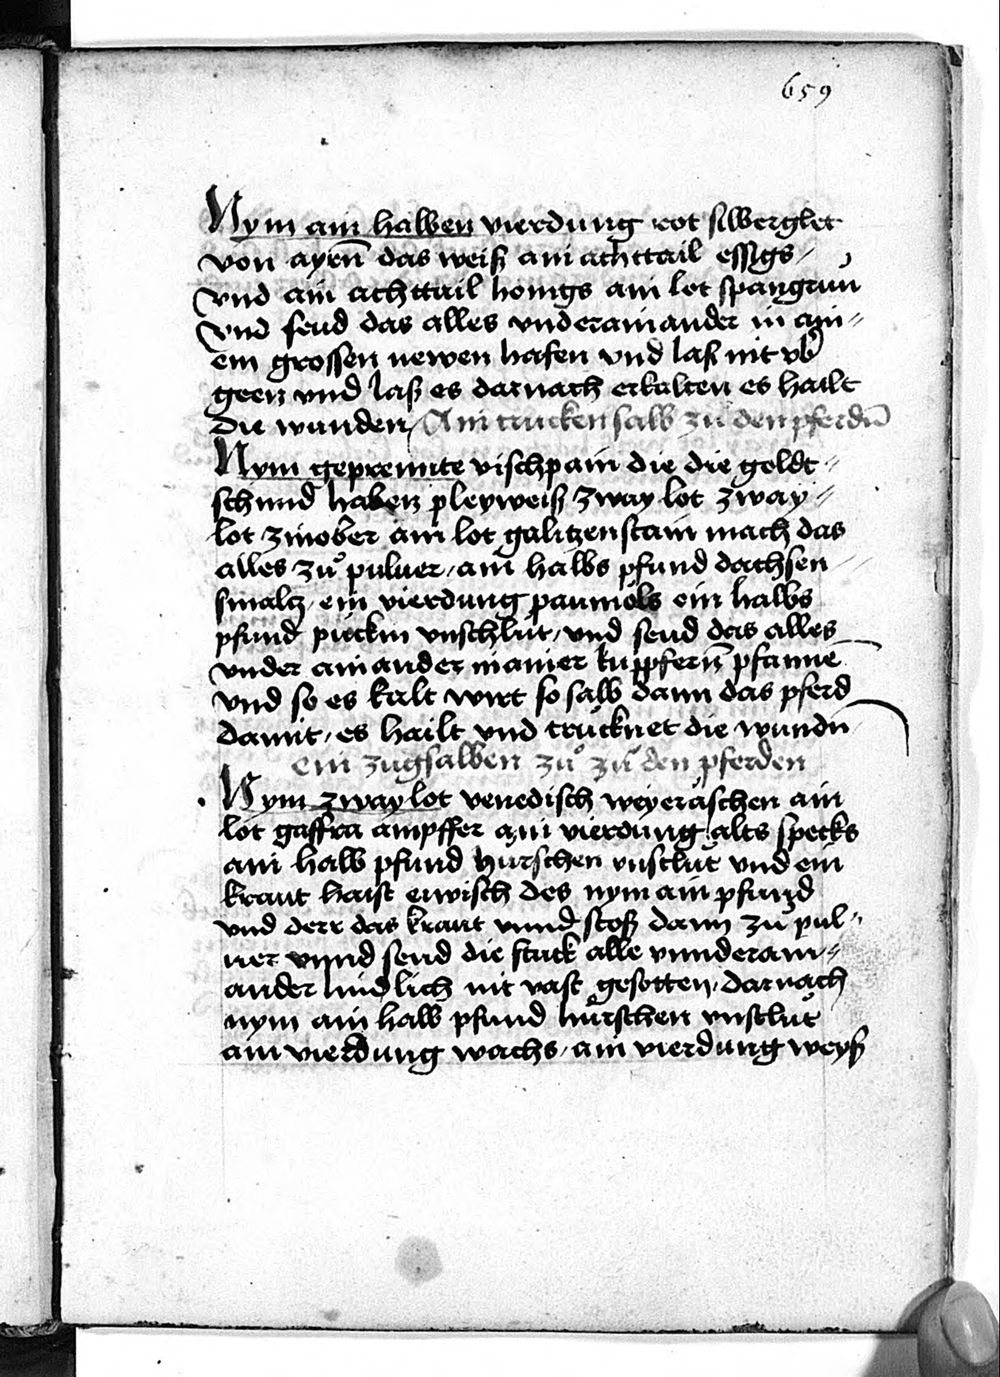 659
Nym ain halben vierdung rot silberglet
von ayrn̄ das weiß ain achttail essigs /
vnd ain achttail honigs ain lot spangrün
vnd seud das alles vnderainander in ain=
em grossen newen hafen vnd laß nit vb̄
geen vnd laß es darnach erkalten es hailt
die wunden / Ain trucken salb zů den pferdn̄
Nym geprennte vischpain die die goldt=
schmid haben pleyweiß zway lot zway=
lot zinober ain lot galitzenstain mach das
alles zů puluer / ain halbs pfund dachsen=
smaltz / ein vierdung paumöls ein halbs
pfund pückin vnschlüt / vnd seud das alles
vnder ainander in ainer kuppfern̄ pfanne
vnd so es kalt wirt so salb dann das pferd
damit / es hailt vnd trücknet die wundn
ein zugsalben zů zů den pferden
Nym zway lot venedisch weyeraschen ain
lot gaffra ampffer ain vierdung alts specks
ain halb pfund hürschen vnslüt vnd ein
kraut haist eiwisch des nym ain pfund
vnd derr das kraut vnnd stoß dann zů pul=
uer vnnd seud die stuck alle vnnderain=
ander lindlich nit vast gesotten / darnach
nym ain halb pfund hürschen vnslüt
ain vierdung wachs / ain vierdung weyß